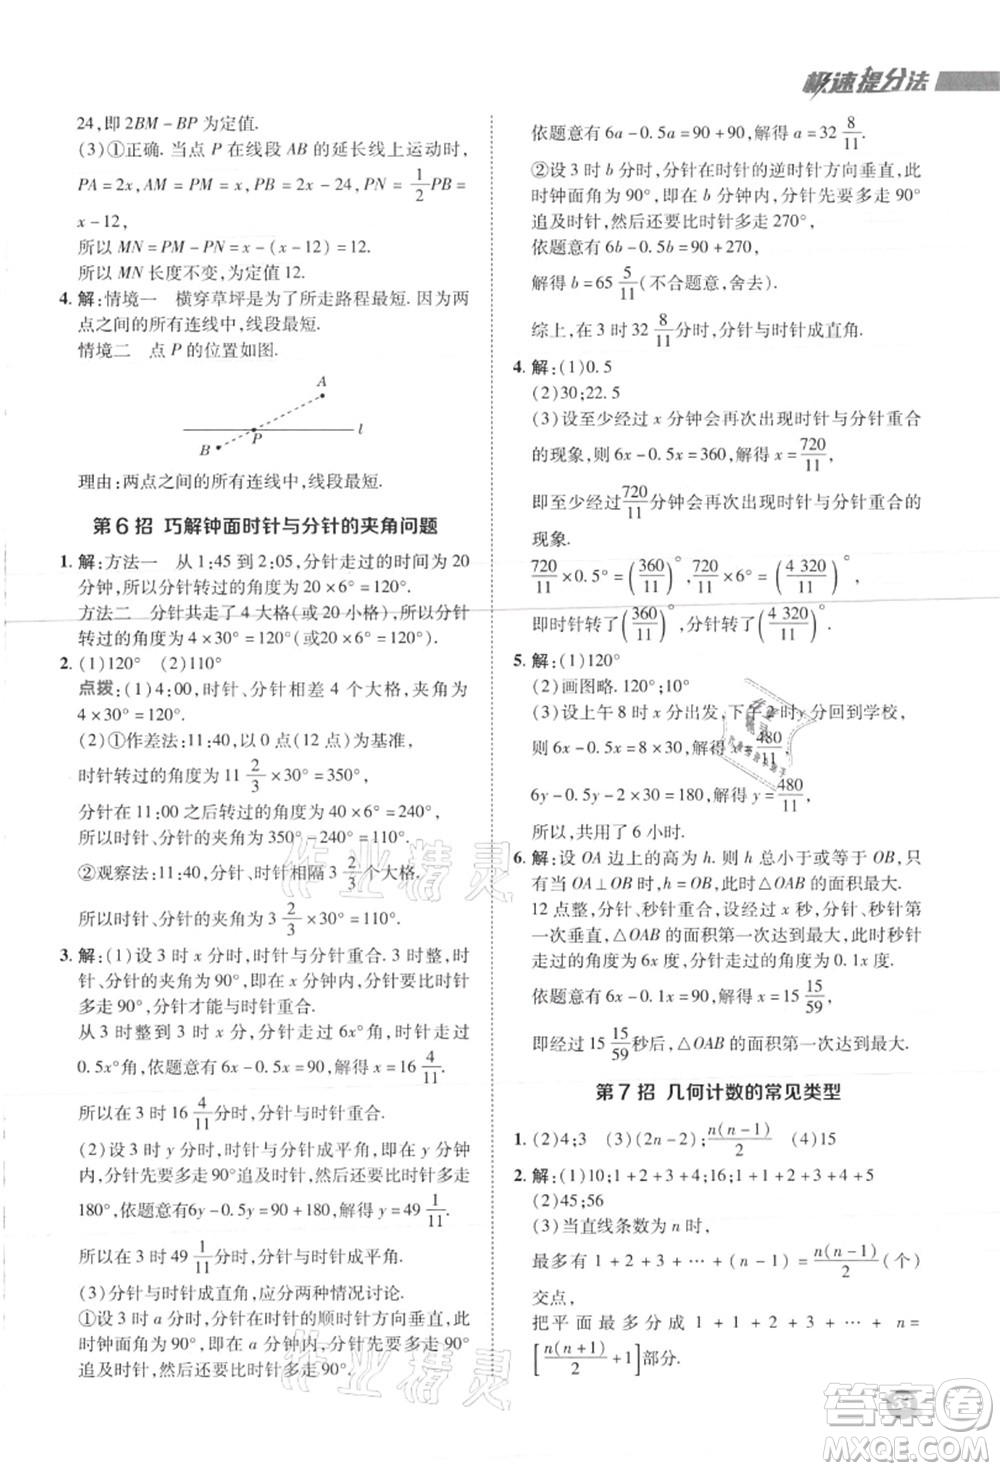 极速提分法
24,即2BM-BP为定值.
(3)①正确. 当点P在线段AB的延长线上运动时,
PA=2x,AM=PM=x,PB=2x-24,PN=\frac{1}{2}PB=
x-12,
所以MN=PM-PN=x-(x-12)=12.
所以MN长度不变,为定值12.
4. 解:情境一 横穿草坪是为了所走路程最短. 因为两
点之间的所有连线中,线段最短.
情境二 点P的位置如图.
A
P
l
B
理由:两点之间的所有连线中,线段最短.
第6招 巧解钟面时针与分针的夹角问题
1. 解:方法一 从1:45到2:05,分针走过的时间为20
分钟,所以分针转过的角度为20×6°=120°.
方法二 分针共走了4大格(或20小格),所以分针
转过的角度为4×30°=120°(或20×6°=120°).
2. (1)120° (2)110°
点拨:(1)4:00,时针、分针相差4个大格,夹角为
4×30°=120°.
(2)①作差法:11:40,以0点为基准,
时针转过的角度为11\frac{2}{3}×30°=350°,
分针在11:00之后转过的角度为40×6°=240°,
所以时针、分针的夹角为350°-240°=110°.
②观察法:11:40,分针、时针相隔3\frac{2}{3}个大格.
所以时针、分针的夹角为3\frac{2}{3}×30°=110°.
3. 解:(1)设3时x分时,分针与时针重合. 3时整,时
针、分针的夹角为90°,即在x分钟内,分针要比时针
多走90°,分针才能与时针重合.
从3时整到3时x分,分针走过6x°角,时针走过
0.5x°角,依题意有6x-0.5x=90,解得x=16\frac{4}{11}.
所以在3时16\frac{4}{11}分时,分针与时针重合.
(2)设3时y分时,时针与分针成平角,即在y分钟
内,分针先要多走90°追及时针,然后还要比时针多走
180°,依题意有6y-0.5y=90+180,解得y=49\frac{1}{11}.
所以在3时49\frac{1}{11}分时,分针与时针成平角.
(3)分针与时针成直角,应分两种情况讨论.
①设3时a分时,分针在时针的顺时针方向垂直,此
时钟面角为90°,即在a分钟内,分针先要多走90°
追及时针,然后还要比时针多走90°.
依题意有6a-0.5a=90+90,解得a=32\frac{8}{11}.
②设3时b分时,分针在时针的逆时针方向垂直,此
时钟面角为90°,即在b分钟内,分针先要多走90°
追及时针,然后还要比时针多走270°,
依题意有6b-0.5b=90+270,
解得b=65\frac{5}{11}(不合题意,舍去).
综上,在3时32\frac{8}{11}分时,分针与时针成直角.
4. 解:(1)0.5
(2)30;22.5
(3)设至少经过x分钟会再次出现时针与分针重合
的现象,则6x-0.5x=360,解得x=\frac{720}{11},
即至少经过\frac{720}{11}分钟会再次出现时针与分针重合的
现象.
\frac{720}{11}×0.5°=(\frac{360}{11})°,\frac{720}{11}×6°=(\frac{4 320}{11})°,
即时针转了(\frac{360}{11})°,分针转了(\frac{4 320}{11})°.
5. 解:(1)120°
(2)画图略. 120°;10°
(3)设上午8时x分出发,下午2时y分回到学校,
则6x-0.5x=8×30,解得x=\frac{480}{11},
6y-0.5y=2×30+180,解得y=\frac{480}{11},
所以,共用了6小时.
6. 解:设OA边上的高为h. 则h总小于或等于OB,只
有当OA⊥OB时,h=OB,此时△OAB的面积最大.
12点整,分针、秒针重合,设经过x秒,分针、秒针第
一次垂直,△OAB的面积第一次达到最大,此时秒针
走过的角度为6x度,分针走过的角度为0.1x度.
依题意有6x-0.1x=90,解得x=15\frac{15}{59},
即经过15\frac{15}{59}秒后,△OAB的面积第一次达到最大.
第7招 几何计数的常见类型
1. (2)4;3 (3)(2n-2);\frac{n(n-1)}{2} (4)15
2. 解:(1)10;1+2+3+4;16;1+1+2+3+4+5
(2)45;56
(3)当直线条数为n时,
最多有1+2+3+…+(n-1)=\frac{n(n-1)}{2}(个)
交点,
把平面最多分成1+1+2+3+…+n=
[\frac{n(n+1)}{2}+1]部分.
31
作业精灵
作业精灵
答案卷
MXQE.COM